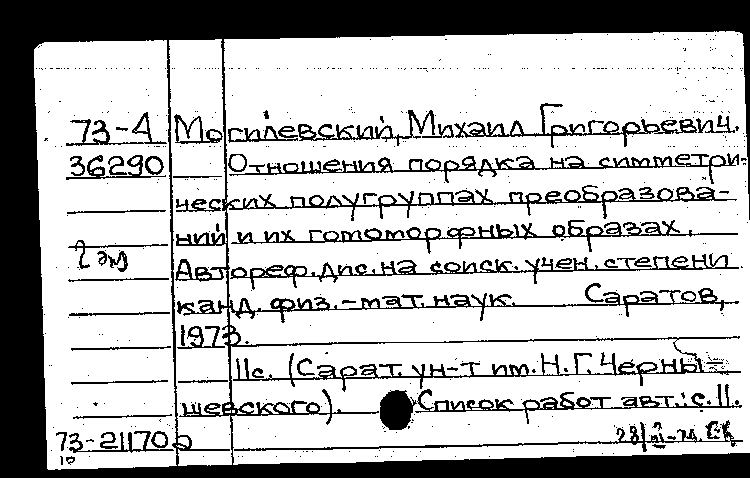 73-4 Могилевский, Михаил Григорьевич.
36290 Отношения порядка на симметри-
ческих полугруппах преобразова-
ний и их гомоморфных образах.
2 эк
Автореф. дис. на соиск. учен. степени
канд. физ.-мат. наук. Саратов,
1973.
11с. (Сарат. ун-т им. Н.Г. Черны-
шевского). Список работ авт.: с.11.
73-21170
10